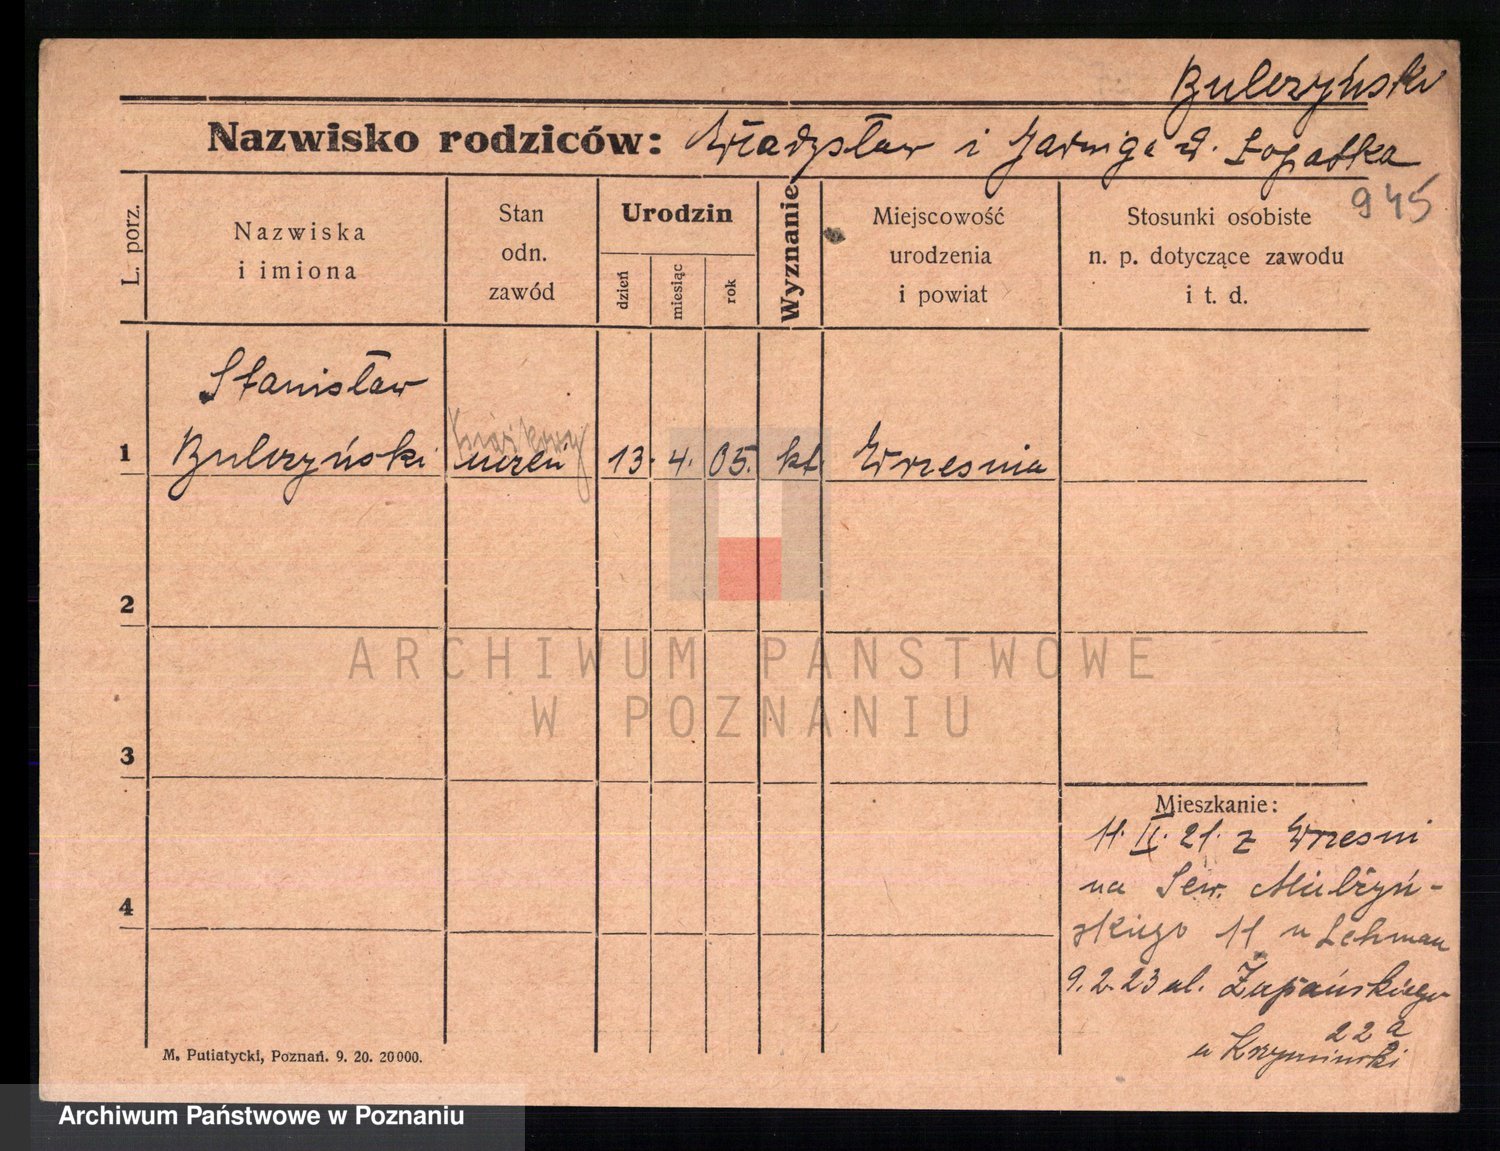 Bulczyński
Nazwisko rodziców: Władysław i Jadwiga d. Łopatka
945
L. porz.
Nazwiska
i imiona
Stan
odn.
zawód
Urodzin
dzień
miesiąc
rok
Wyznanie
Miejscowość
urodzenia
i powiat
Stosunki osobiste
n. p. dotyczące zawodu
i t. d.
Stanisław
1 Bulczyński uczeń 13. 4. 05. kt. Wrzesnia
2
3
4
Mieszkanie:
11. II. 21. z Wrzesni
na Sew. Mielżyń-
skiego 11 u Lehman
9. 2. 23 ul. Żupańskiego
22a
u Krzyminski
M. Putiatycki, Poznań. 9. 20. 20000.
ARCHIWUM PAŃSTWOWE
W POZNANIU
Archiwum Państwowe w Poznaniu